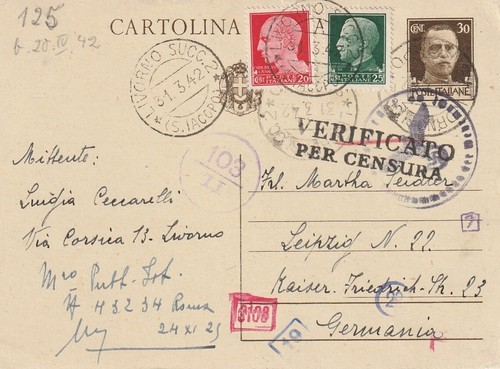 125
b. 20.IV.42
CARTOLINA
LIVORNO SUCC. 2
31.3.42
(S. JACOPO)
20
POSTE ITALIANE
25
CENT. 30
POSTE ITALIANE
VERIFICATO
PER CENSURA
108
II
Mittente:
Luigia Ceccarelli
Via Corsica 13. Livorno
43234 Roma
24 XI 25
Frl. Martha Seidler
Leipzig N. 22
Kaiser. Friedrich-Str. 23
Germania
7
3108
19